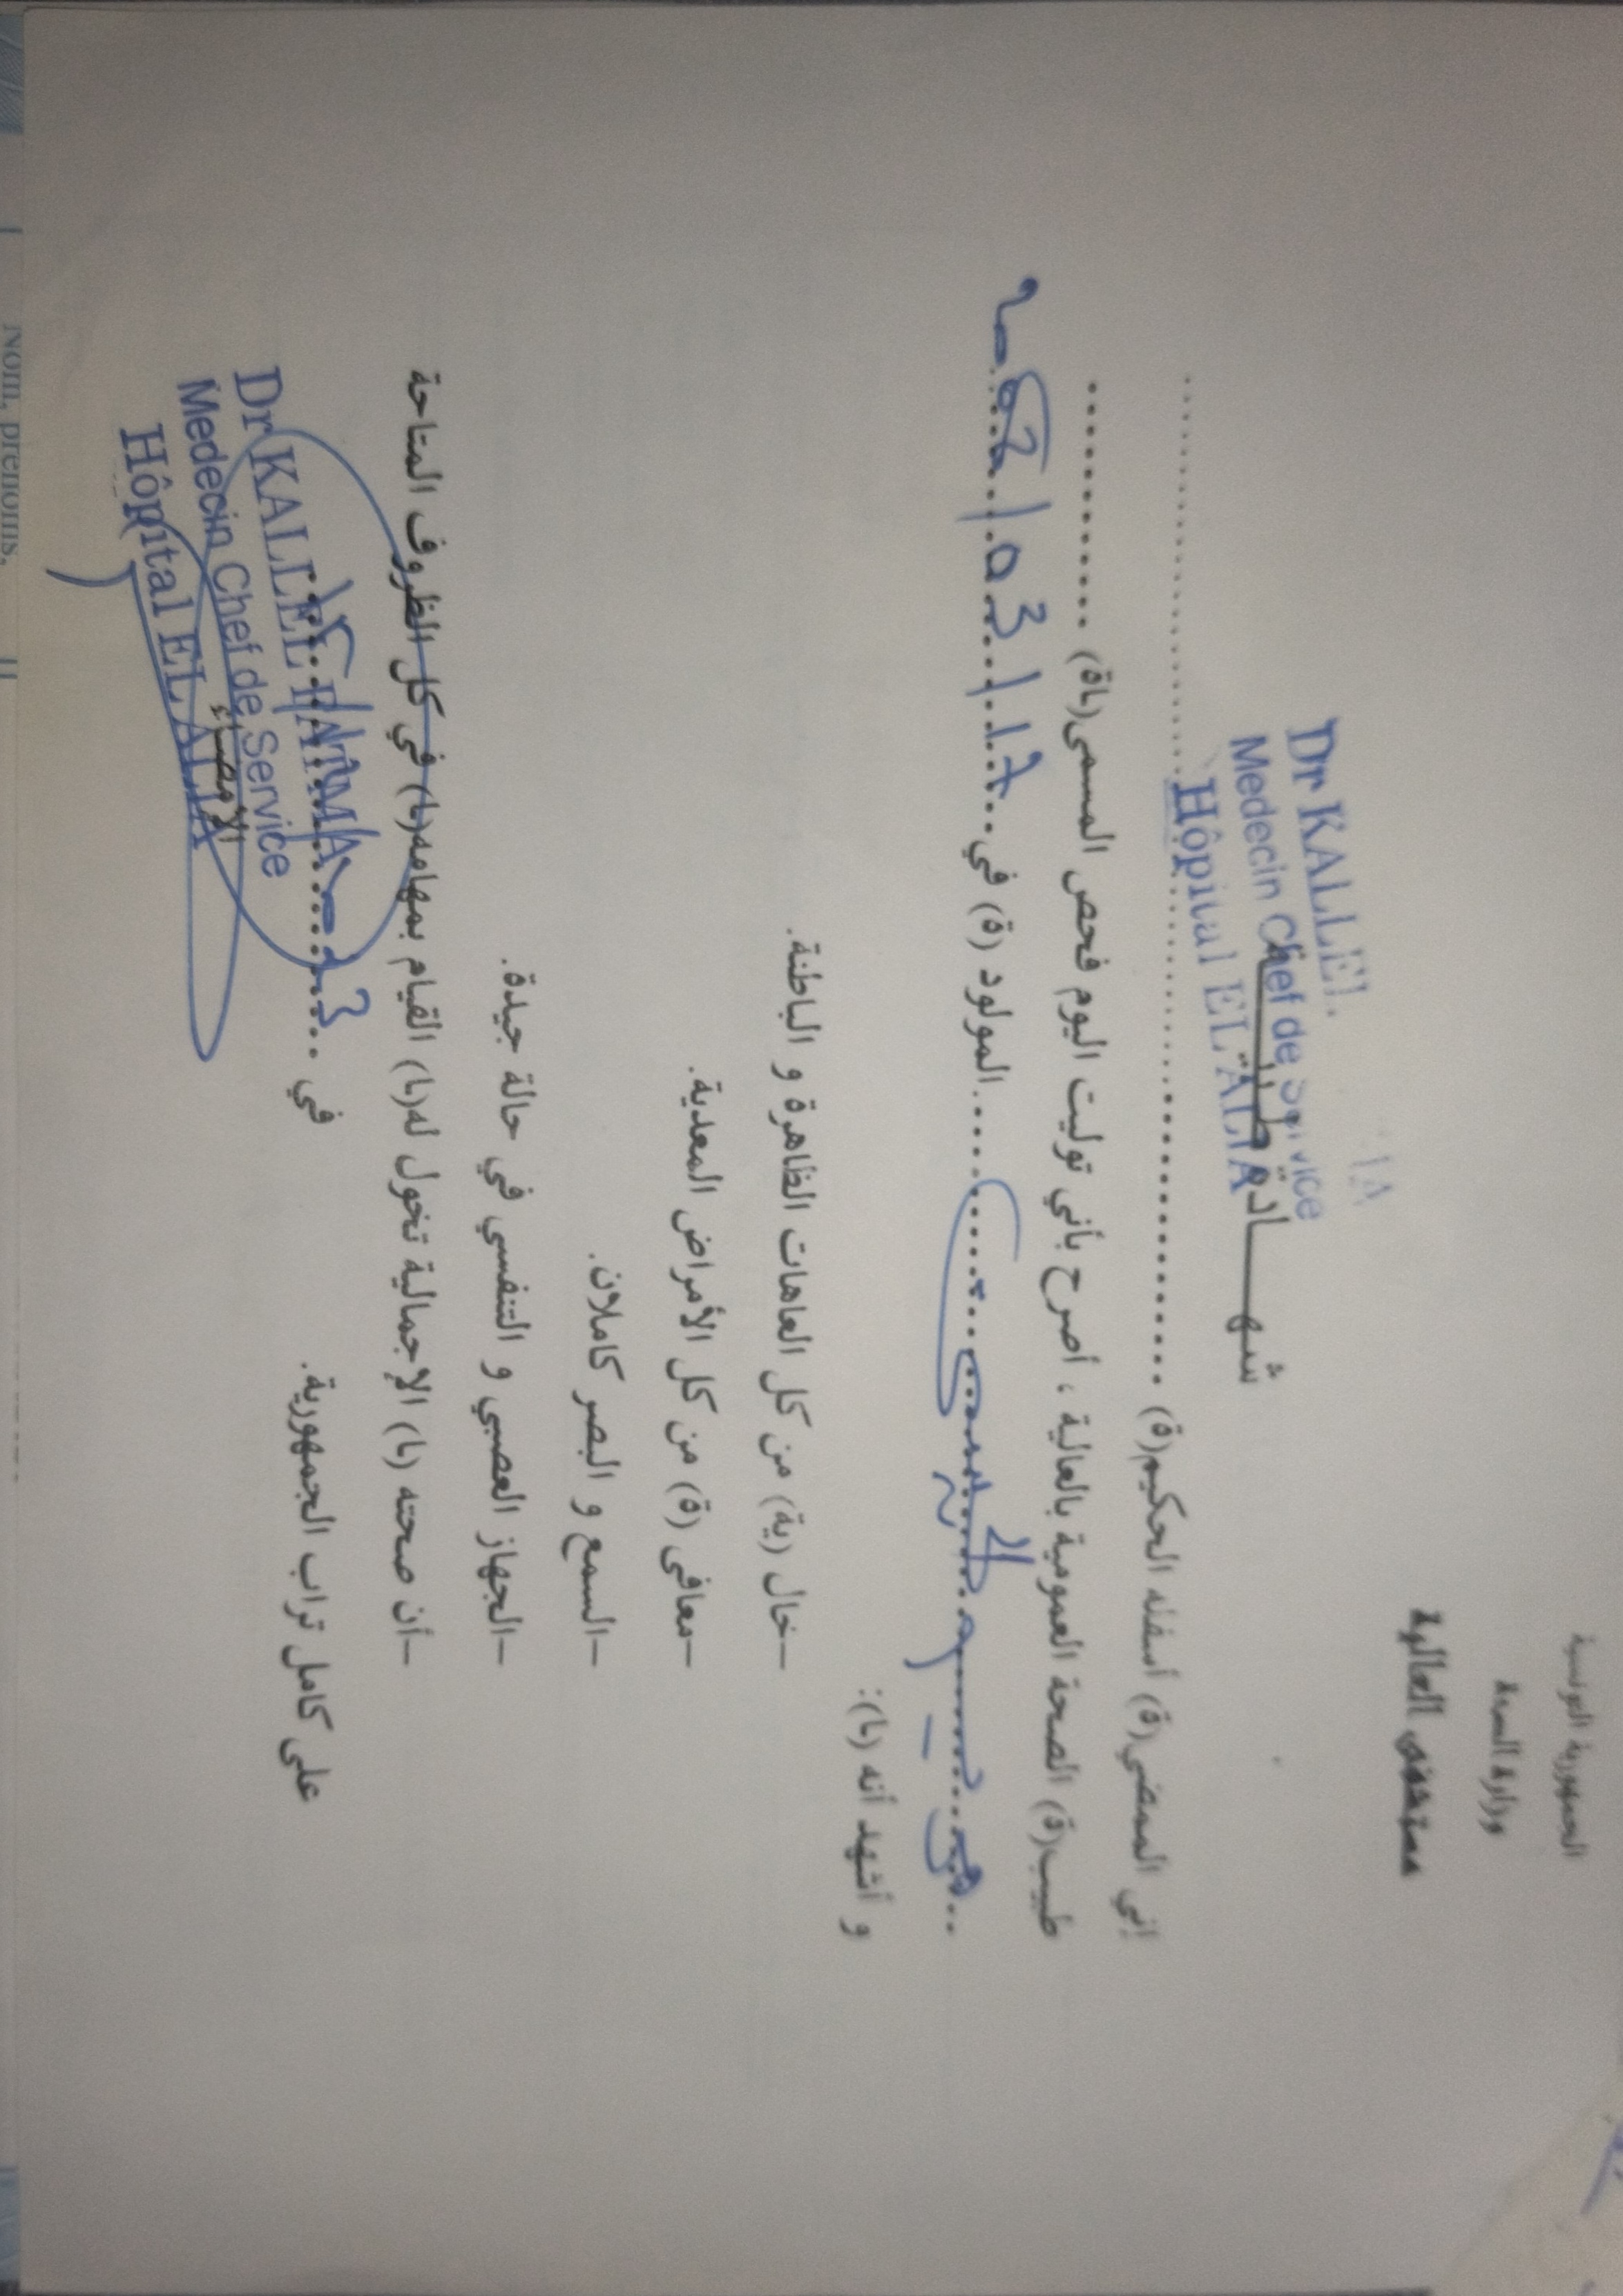 الجمهورية التونسية
وزارة الصحة
مستشفى العالية
Dr KALLEL
Medecin Chef de Service
Hôpital EL ALIA
شهـــادة طبيّة
إني الممضي(ة) أسفله الحكيم(ة) ..........
طبيب(ة) الصحة العمومية بالعالية ، أصرح بأني توليت اليوم فحص المسمى(اة) ..........
..........المولود (ة) في..........
و أشهد أنه (ا):
–خال (ية) من كل العاهات الظاهرة و الباطنة.
–معافى (ة) من كل الأمراض المعدية.
–السمع و البصر كاملان.
–الجهاز العصبي و التنفسي في حالة جيدة.
–أن صحته (ا) الإجمالية تخول له(ا) القيام بمهامه(ا) في كل الظروف المتاحة
على كامل تراب الجمهورية.
في ..........
Dr KALLEL FATMA
Medecin Chef de Service
الإمضاء
Hôpital EL ALIA
Nom, prénoms,